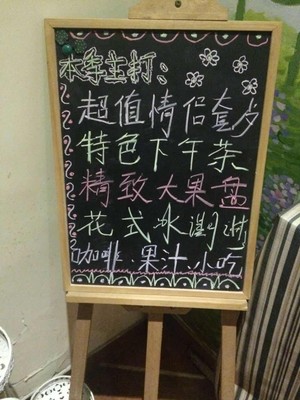 本季主打:
超值情侣套歺
特色下午茶
精致大果盘
花式冰激淋
咖啡·果汁·小吃